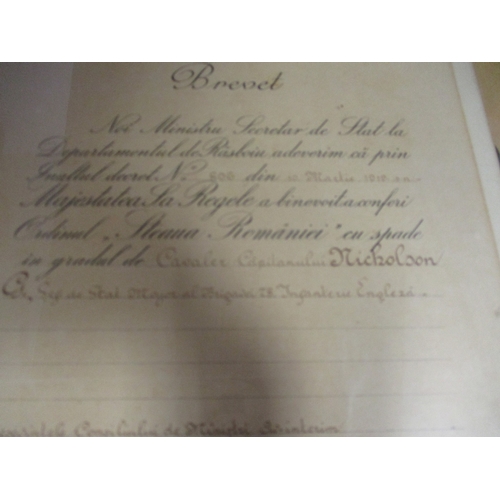 Brevet
Noi Ministru Secretar de Stat la
Departamentul de Răsboiu adeverim că prin
Inaltul decret No. 800 din 10 Martie 1919
Majestatea Sa Regele a binevoit a conferi
Ordinul „Steaua României" cu spade
in gradul de Cavaler Căpitanului Nicholson
Șef de Stat Major al Brigada 78 Infanterie Engleză
Consiliului de Miniștri